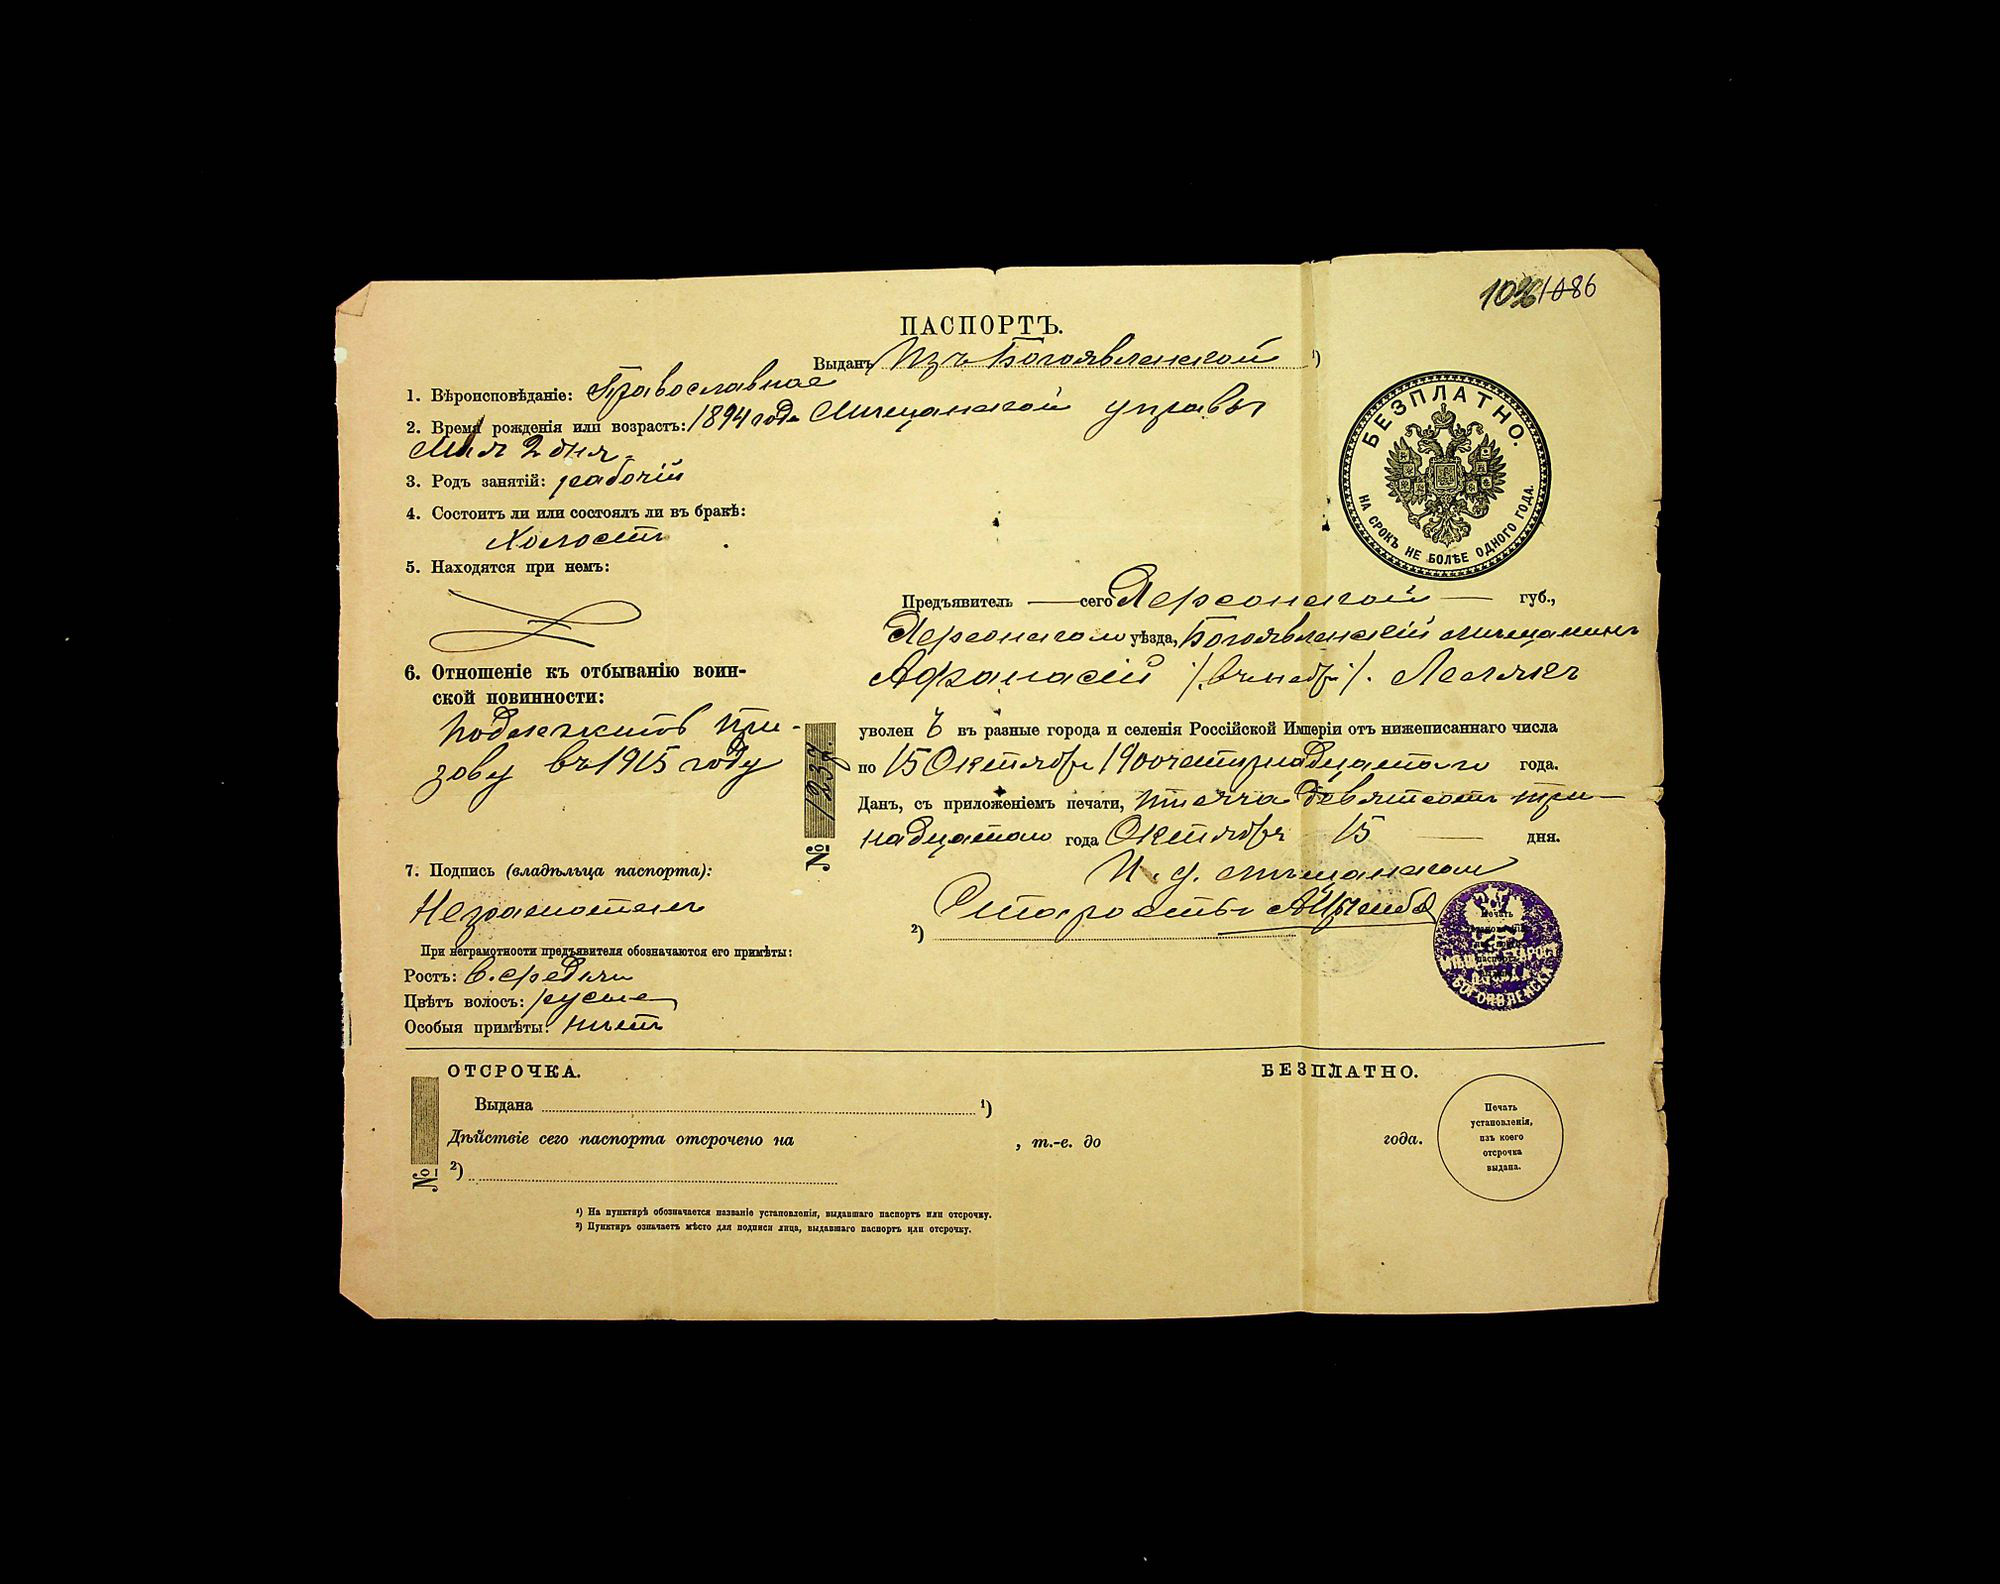 1086
ПАСПОРТЪ.
Выданъ Изъ Богоявленской ¹)
Мѣщанской управы
1. Вѣроисповѣданіе: Православное
2. Время рожденія или возрастъ: 1894 года
Мая 2 дня.
3. Родъ занятій: рабочій
4. Состоитъ ли или состоялъ ли въ бракѣ:
Холостъ
5. Находятся при немъ:
6. Отношеніе къ отбыванію воин-
ской повинности:
Подлежитъ при-
зову въ 1915 году
7. Подпись (владѣльца паспорта):
Неграмотенъ
При неграмотности предъявителя обозначаются его примѣты:
Ростъ: в. средній
Цвѣтъ волосъ: русые
Особыя примѣты: нѣтъ
БЕЗПЛАТНО.
НА СРОКЪ НЕ БОЛѢЕ ОДНОГО ГОДА.
Предъявитель сего Херсонской губ.,
Херсонскаго уѣзда, Богоявленскій мѣщанинъ
Афанасій /:внѣбр:/.
уволенъ въ разные города и селенія Россійской Имперіи отъ нижеписаннаго числа
по 15 Октября 1900 четырнадцатаго года.
Данъ, съ приложеніемъ печати, тысяча девятьсотъ три-
надцатаго года Октября 15 дня.
И. д. мѣщанскаго
²) Старосты
№ 1237.
БОГОЯВЛЕНСК
ОТСРОЧКА.
БЕЗПЛАТНО.
Выдана ¹)
Дѣйствіе сего паспорта отсрочено на , т.-е. до года.
№ ²)
Печать
установленія,
изъ коего
отсрочка
выдана.
¹) На пунктирѣ обозначается названіе установленія, выдавшаго паспортъ или отсрочку.
²) Пунктиръ означаетъ мѣсто для подписи лица, выдавшаго паспортъ или отсрочку.